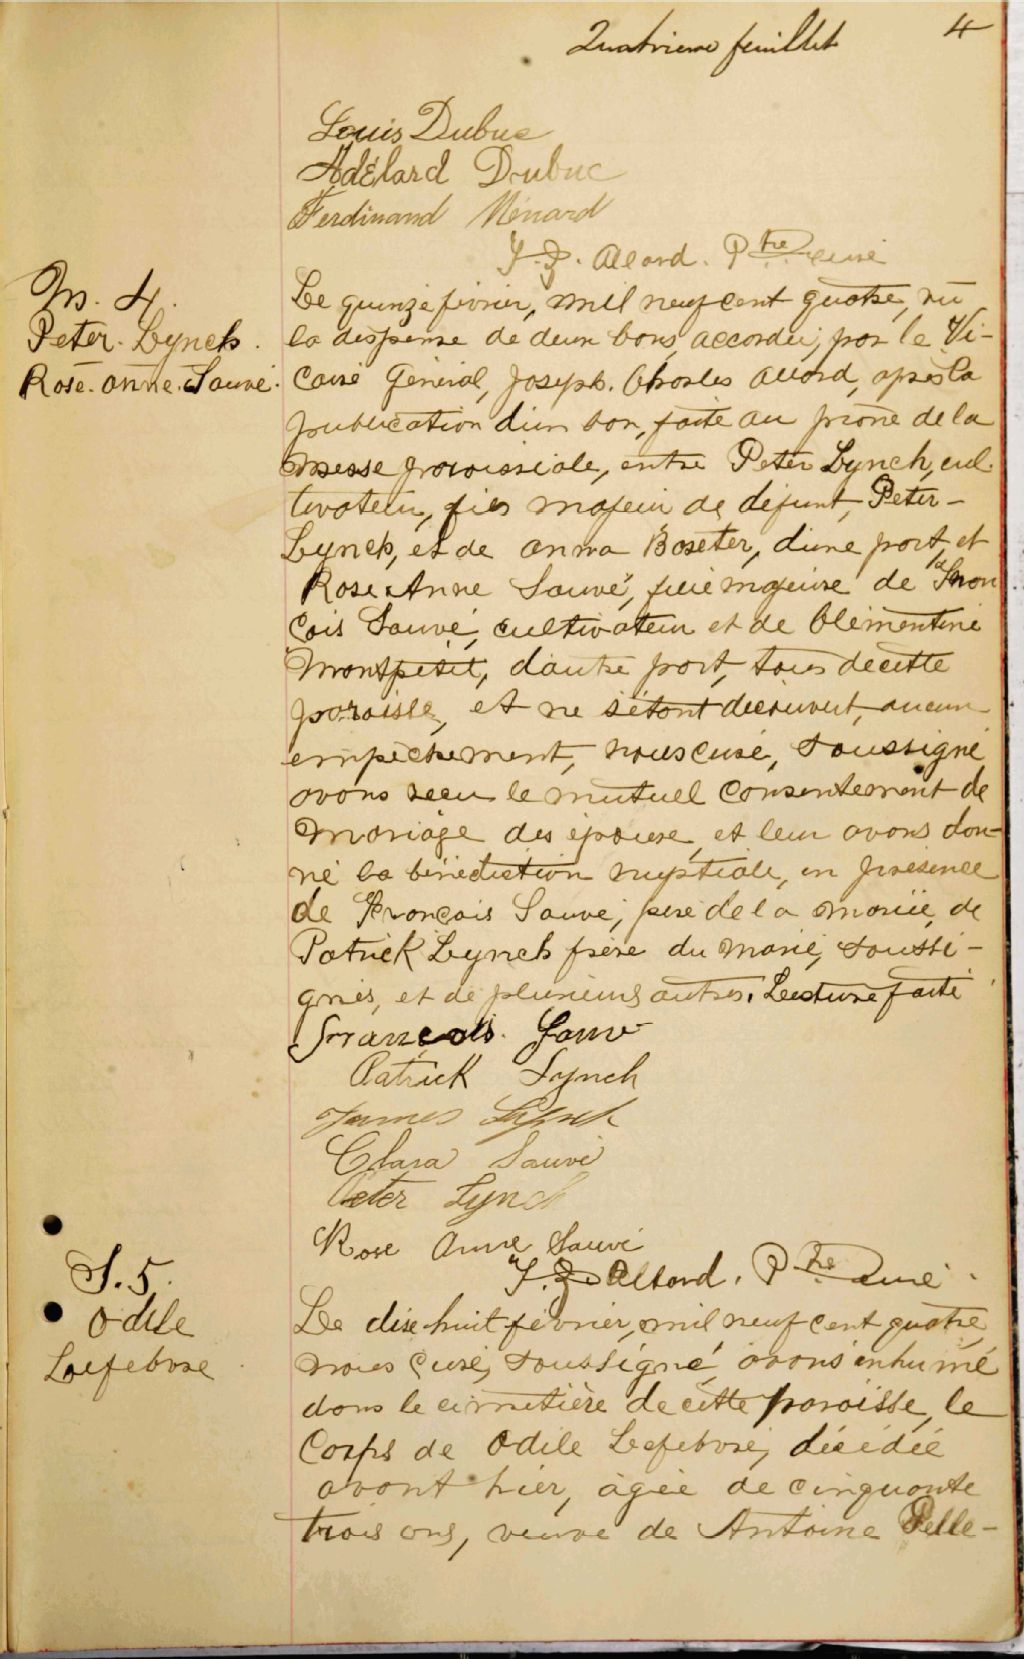 Quatrieme feuillet
4
Louis Dubuc
Adélard Dubuc
Ferdinand Ménard
J. Z. Allard. Ptre curé
M. 4.
Peter Lynch.
Rose. Anne. Sauvé.
Le quinze février, mil neuf cent quatre, vu
la dispense de deux bans, accordée, par le Vi-
caire Général, Joseph. Charles Allard, après la
publication d'un ban, faite au prône de la
messe paroissiale, entre Peter Lynch, cul
tivateur, fils majeur de défunt, Peter-
Lynch, et de Anna Boseter, d'une part, et
Rose Anne Sauvé, fille majeure de Fran
çois Sauvé, cultivateur et de Clémentine
Montpetit, d'autre part, tous de cette
paroisse, et ne s'étant découvert, aucun
empêchement, nous curé, soussigné
avons reçu le mutuel consentement de
mariage des époux, et leur avons don-
né la bénédiction nuptiale, en présence
de François Sauvé, père de la mariée, de
Patrick Lynch frère du marié, soussi-
gnés, et de plusieurs autres. Lecture faite
François. Sauv
Patrick Lynch
James Lynch
Clara Sauvé
Peter Lynch
Rose Anne Sauvé
J. Z. Allard. Ptre curé
S. 5.
Odile
Lefebvre
Le dix huit février, mil neuf cent quatre,
nous curé, soussigné, avons inhumé
dans le cimetière de cette paroisse, le
Corps de Odile Lefebvre, décédée
avant hier, âgée de cinquante
trois ans, veuve de Antoine Pelle-